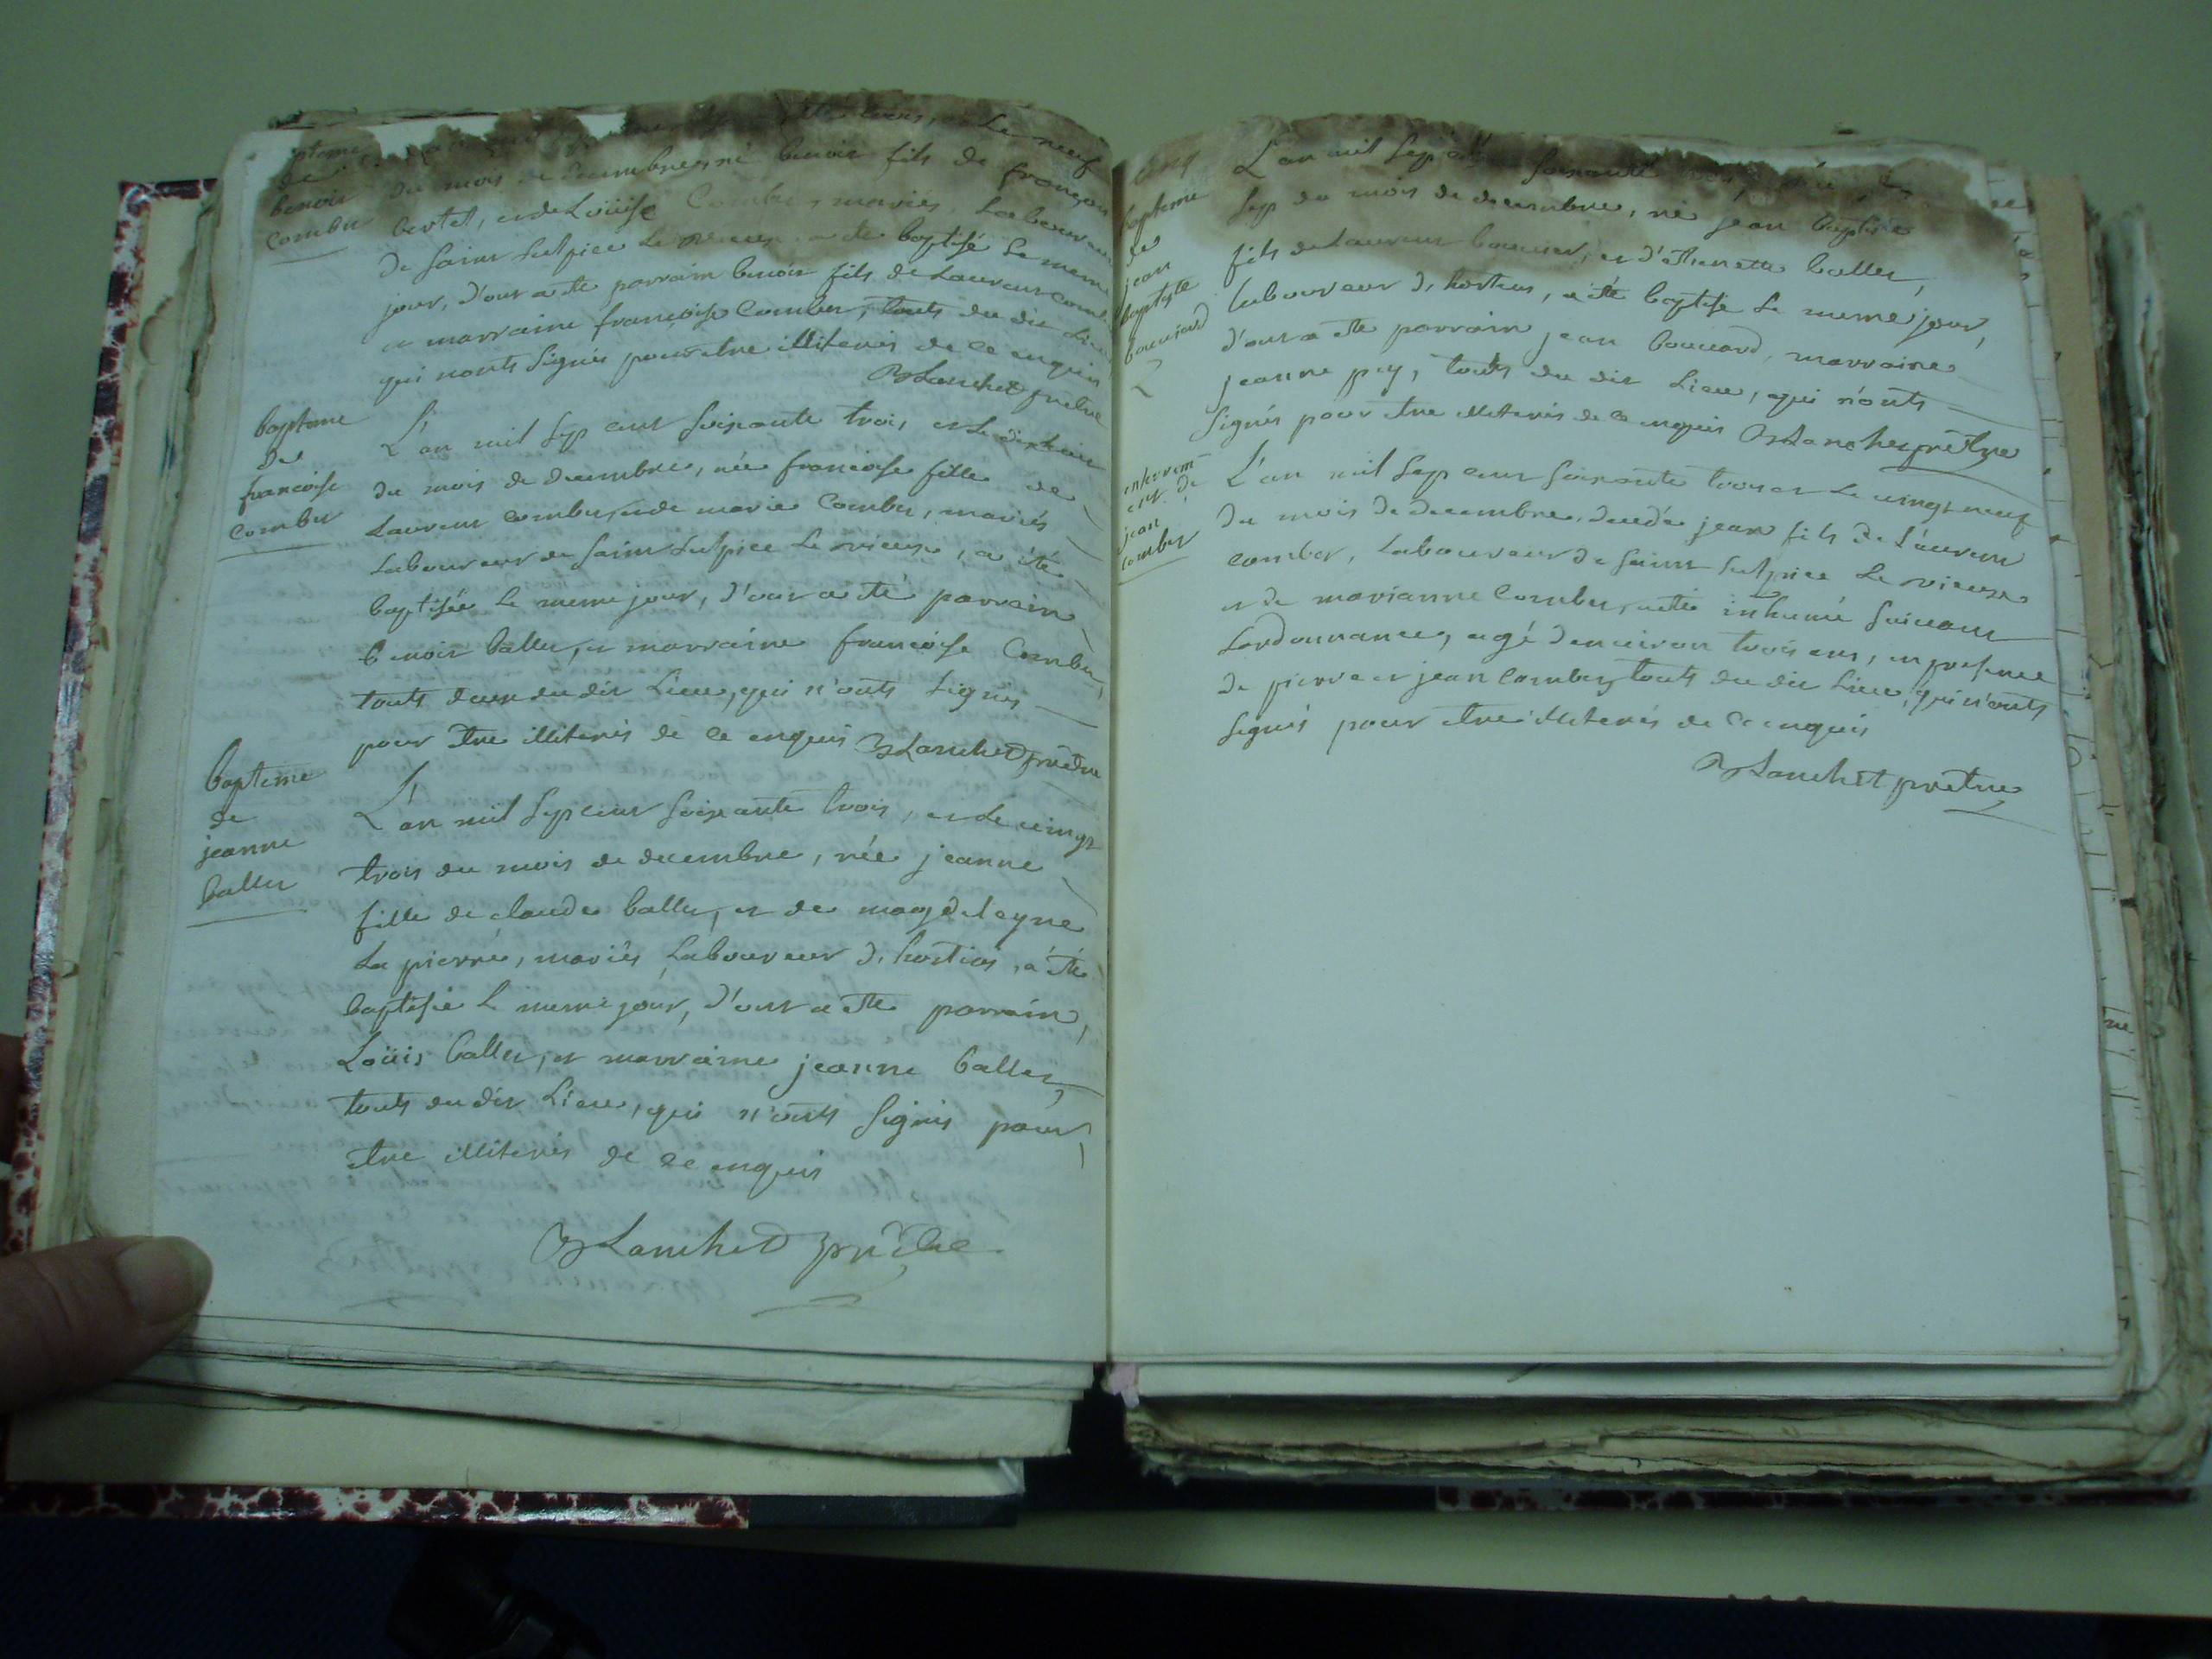 de
benoit
comber
le neuf
du mois de decembre, né benoit fils de françois
bertet, et de Loüise Comber, mariés, Laboureur
de saint sulpice le vieux, a été baptisé le meme
jour, d'ont a été parrain benoit fils de Laurent
et marraine françoise Comber, touts du dit Lieu
qui n'onts signés pour etre illiterés de ce enquis
Blanchet pretre
bapteme
de
francoise
comber
L'an mil sept cent soixante trois, et le
du mois de decembre, née francoise fille de
Laurent comber, et de marie Comber, mariés
Laboureur de saint sulpice le vieux, a été
baptisée le meme jour, d'ont a été parrain
benoit ballet, et marraine francoise Comber,
touts deux du dit Lieu, qui n'onts signés
pour etre illiterés de ce enquis Blanchet pretre
bapteme
de
jeanne
ballet
L'an mil sept cent soixante trois, et le vingt
trois du mois de decembre, née jeanne
fille de claude ballet, et de magdeleyne
La pierre, mariés Laboureur d'hostias, a été
baptisée le meme jour, d'ont a été parrain,
Loüis ballet, et marraine jeanne ballet,
touts du dit Lieu, qui n'onts signés pour
etre illiterés de ce enquis
Blanchet pretre
bapteme
de
jean
baptiste
bouvard
L'an mil sept soixante
sept du mois de decembre, né jean baptiste
fils de Laurent et d'ethienette ballet,
laboureur d'hostias, a été baptisé le meme jour,
d'ont a été parrain jean bouvard, marraine
jeanne pey, touts du dit Lieu, qui n'onts
signés pour etre illiterés de ce enquis Blanchet prêtre
enterrem
ent de
jean
comber
L'an mil sept cent soixante trois et le vingt neuf
du mois de decembre, decedé jean fils de Laurent
comber, Laboureur de saint sulpice le vieux
et de marianne Comber, a été inhumé suivant
Lordonnance, agé d'environ trois ans, en presence
de pierre et jean Comber, touts du dit Lieu, qui n'onts
signés pour etre illiterés de ce enquis
Blanchet pretre